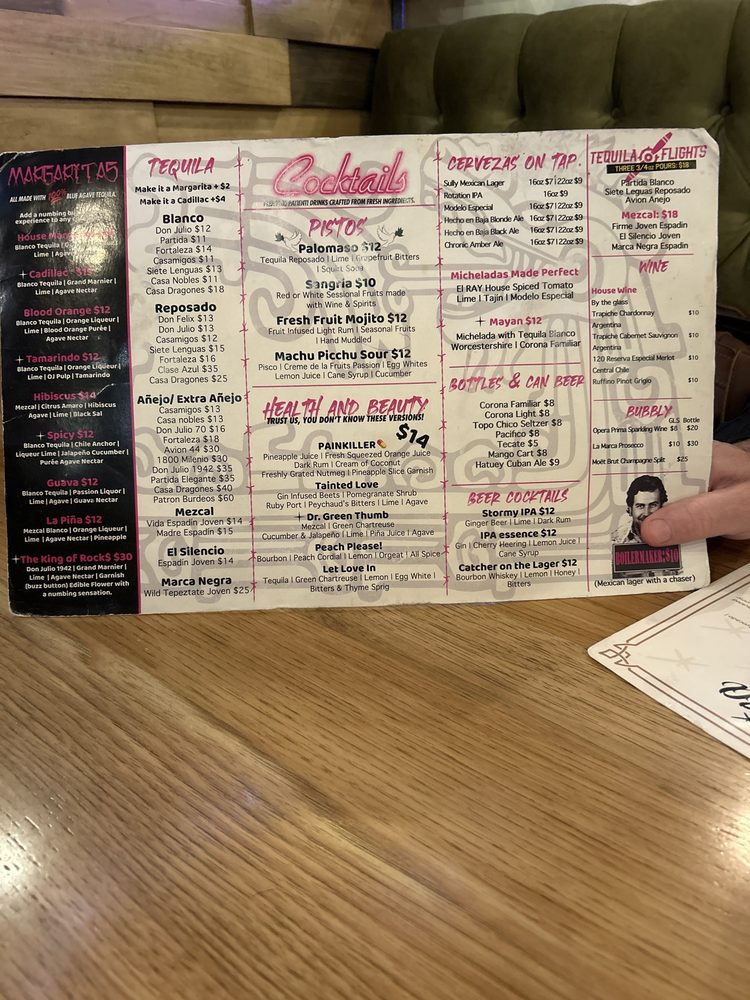 MARGARITAS
ALL MADE WITH 100% BLUE AGAVE TEQUILA.
Add a numbing bu
experience to any
House Marga
Blanco Tequila |
Lime | Agave
+ Cadillac
Blanco Tequila | Grand Marnier |
Lime | Agave Nectar
Blood Orange $12
Blanco Tequila | Orange Liqueur |
Lime | Blood Orange Purée |
Agave Nectar
+ Tamarindo $12
Blanco Tequila | Orange Liqueur |
Lime | OJ Pulp | Tamarindo
Hibiscus $14
Mezcal | Citrus Amaro | Hibiscus
Agave | Lime | Black Sal
+ Spicy $12
Blanco Tequila | Chile Anchor |
Liqueur Lime | Jalapeño Cucumber |
Purée Agave Nectar
Guava $12
Blanco Tequila | Passion Liquor |
Lime | Agave | Guava Nectar
La Piña $12
Mezcal Blanco | Orange Liqueur |
Lime | Agave Nectar | Pineapple
+The King of Rock$ $30
Don Julio 1942 | Grand Marnier |
Lime | Agave Nectar | Garnish
(buzz button) Edible Flower with
a numbing sensation.
TEQUILA
Make it a Margarita + $2
Make it a Cadillac +$4
Blanco
Don Julio $12
Partida $11
Fortaleza $14
Casamigos $11
Siete Lenguas $13
Casa Nobles $11
Casa Dragones $18
Reposado
Don Felix $13
Don Julio $13
Casamigos $12
Siete Lenguas $15
Fortaleza $16
Clase Azul $35
Casa Dragones $25
Añejo/ Extra Añejo
Casamigos $13
Casa nobles $13
Don Julio 70 $16
Fortaleza $18
Avion 44 $30
1800 Milenio $30
Don Julio 1942 $35
Partida Elegante $35
Casa Dragones $40
Patron Burdeos $60
Mezcal
Vida Espadin Joven $14
Madre Espadin $15
El Silencio
Espadin Joven $14
Marca Negra
Wild Tepeztate Joven $25
Cocktails
PATIENT! DRINKS CRAFTED FROM FRESH INGREDIENTS.
PISTOS
Palomaso $12
Tequila Reposado | Lime | Grapefruit Bitters
| Squirt Soda
Sangria $10
Red or White Sessional Fruits made
with Wine & Spirits
Fresh Fruit Mojito $12
Fruit Infused Light Rum | Seasonal Fruits
| Hand Muddled
Machu Picchu Sour $12
Pisco | Creme de la Fruits Passion | Egg Whites
Lemon Juice | Cane Syrup | Cucumber
HEALTH AND BEAUTY
TRUST US, YOU DON'T KNOW THESE VERSIONS!
$14
PAINKILLER
Pineapple Juice | Fresh Squeezed Orange Juice
Dark Rum | Cream of Coconut
Freshly Grated Nutmeg | Pineapple Slice Garnish
Tainted Love
Gin Infused Beets | Pomegranate Shrub
Ruby Port | Peychaud's Bitters | Lime | Agave
+ Dr. Green Thumb
Mezcal | Green Chartreuse
Cucumber & Jalapeño | Lime | Piña Juice | Agave
Peach Please!
Bourbon | Peach Cordial | Lemon | Orgeat | All Spice
Let Love In
Tequila | Green Chartreuse | Lemon | Egg White |
Bitters & Thyme Sprig
CERVEZAS ON TAP.
Sully Mexican Lager 16oz $7 | 22oz $9
Rotation IPA 16oz $9
Modelo Especial 16oz $7 | 22oz $9
Hecho en Baja Blonde Ale 16oz $7 | 22oz $9
Hecho en Baja Black Ale 16oz $7 | 22oz $9
Chronic Amber Ale 16oz $7 | 22oz $9
Micheladas Made Perfect
El RAY House Spiced Tomato
Lime | Tajin | Modelo Especial
+ Mayan $12
Michelada with Tequila Blanco
Worcestershire | Corona Familiar
BOTTLES & CAN BEER
Corona Familiar $8
Corona Light $8
Topo Chico Seltzer $8
Pacifico $8
Tecate $5
Mango Cart $8
Hatuey Cuban Ale $9
BEER COCKTAILS
Stormy IPA $12
Ginger Beer | Lime | Dark Rum
IPA essence $12
Gin | Cherry Heering | Lemon Juice |
Cane Syrup
Catcher on the Lager $12
Bourbon Whiskey | Lemon | Honey |
Bitters
TEQUILA FLIGHTS
THREE 3/4oz POURS: $18
Partida Blanco
Siete Leguas Reposado
Avion Anejo
Mezcal: $18
Firme Joven Espadin
El Silencio Joven
Marca Negra Espadin
WINE
House Wine
By the glass
Trapiche Chardonnay $10
Argentina
Trapiche Cabernet Sauvignon $10
Argentina
120 Reserva Especial Merlot $10
Central Chile
Ruffino Pinot Grigio $10
BUBBLY
GLS Bottle
Opera Prima Sparkling Wine $8 $20
La Marca Prosecco $10 $30
Moët Brut Champagne Split $25
BOILERMAKER: $10
(Mexican lager with a chaser)